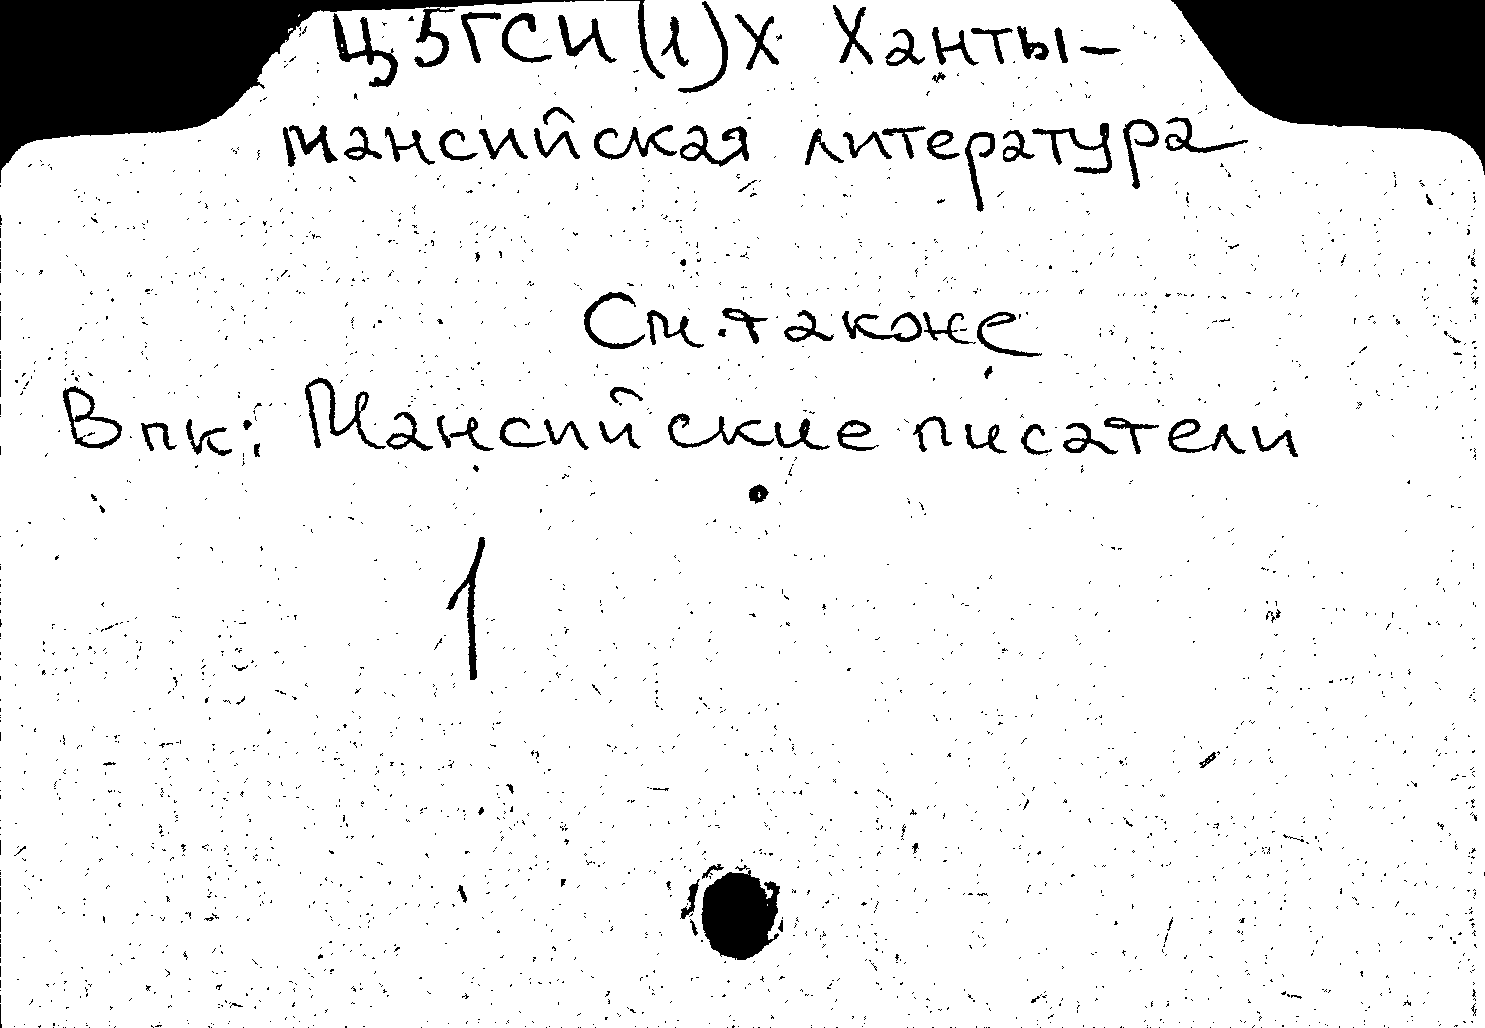 Ц5ГСИ(1)Х Ханты-
мансийская литература
См. также
В пк: Мансийские писатели
1